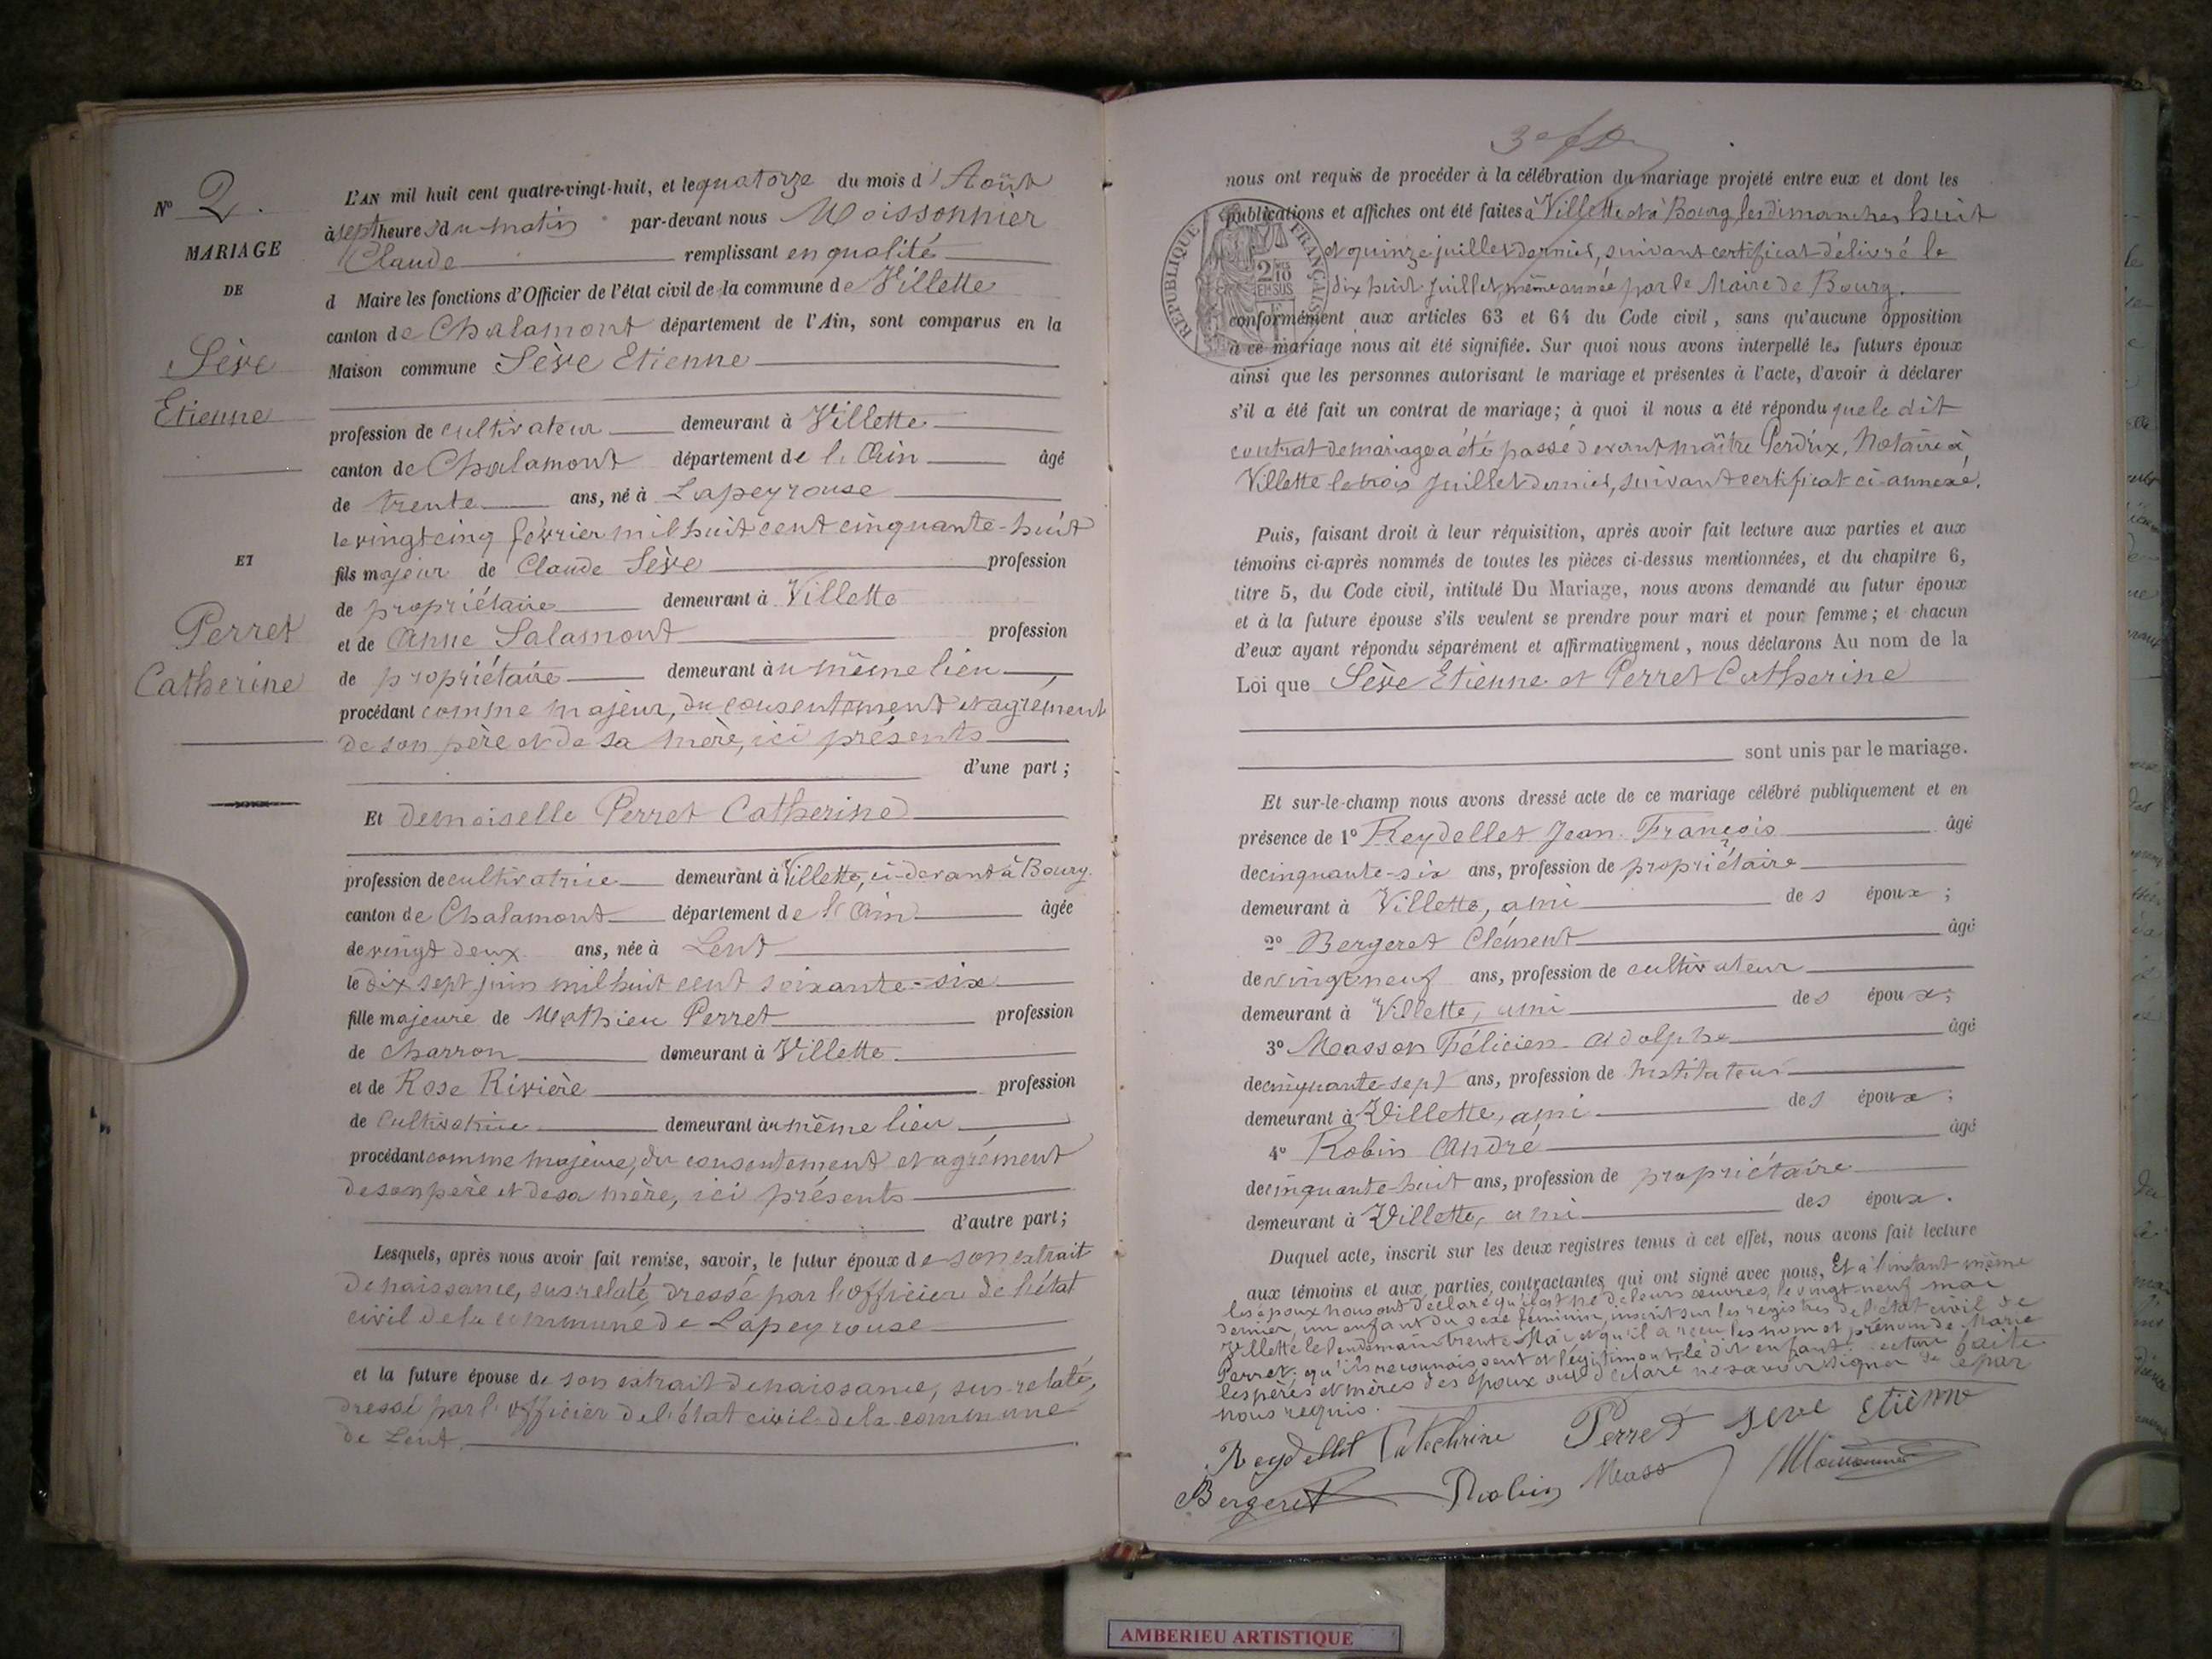 N° 2.
MARIAGE
DE
Sève
Etienne
ET
Perret
Catherine
L'AN mil huit cent quatre-vingt-huit, et le quatorze du mois d'Août
à sept heures du matin par-devant nous Moissonnier
Claude remplissant en qualité
d Maire les fonctions d'Officier de l'état civil de la commune de Villette
canton de Chalamont département de l'Ain, sont comparus en la
Maison commune Sève Etienne
profession de cultivateur demeurant à Villette
canton de Chalamont département de l'Ain âgé
de trente ans, né à Lapeyrouse
le vingt cinq février mil huit cent cinquante-huit
fils majeur de Claude Sève profession
de propriétaire demeurant à Villette
et de Anne Salamont profession
de propriétaire demeurant au même lieu
procédant comme majeur, du consentement et agrément
de son père et de sa mère, ici présents
d'une part;
Et demoiselle Perret Catherine
profession de cultivatrice demeurant à Villette, ci-devant à Bourg
canton de Chalamont département de l'Ain âgée
de vingt deux ans, née à Lent
le dix sept juin mil huit cent soixante-six
fille majeure de Mathieu Perret profession
de charron demeurant à Villette
et de Rose Rivière profession
de cultivatrice demeurant au même lieu
procédant comme majeure, du consentement et agrément
de son père et de sa mère, ici présents
d'autre part;
Lesquels, après nous avoir fait remise, savoir, le futur époux de son extrait
de naissance, sus relaté, dressé par l'officier de l'état
civil de la commune de Lapeyrouse
et la future épouse de son extrait de naissance, sus-relaté,
dressé par l'officier de l'état civil de la commune
de Lent.
nous ont requis de procéder à la célébration du mariage projeté entre eux et dont les
publications et affiches ont été faites à Villette et à Bourg, les dimanches huit
et quinze juillet dernier, suivant certificat délivré le
dix huit juillet, même année par le Maire de Bourg.
conformément aux articles 63 et 64 du Code civil, sans qu'aucune opposition
à ce mariage nous ait été signifiée. Sur quoi nous avons interpellé les futurs époux
ainsi que les personnes autorisant le mariage et présentes à l'acte, d'avoir à déclarer
s'il a été fait un contrat de mariage; à quoi il nous a été répondu que le dit
contrat de mariage a été passé devant maître Perdrix, Notaire à
Villette le trois juillet dernier, suivant certificat ci-annexé.
RÉPUBLIQUE FRANÇAISE
2/10 EN SUS
Puis, faisant droit à leur réquisition, après avoir fait lecture aux parties et aux
témoins ci-après nommés de toutes les pièces ci-dessus mentionnées, et du chapitre 6,
titre 5, du Code civil, intitulé Du Mariage, nous avons demandé au futur époux
et à la future épouse s'ils veulent se prendre pour mari et pour femme; et chacun
d'eux ayant répondu séparément et affirmativement, nous déclarons Au nom de la
Loi que Sève Etienne et Perret Catherine
sont unis par le mariage.
Et sur-le-champ nous avons dressé acte de ce mariage célébré publiquement et en
présence de 1° Reydellet Jean François âgé
de cinquante-six ans, profession de propriétaire
demeurant à Villette, ami des époux;
2° Bergeret Clément âgé
de vingt neuf ans, profession de cultivateur
demeurant à Villette, ami des époux;
3° Masson Félicien Adolphe âgé
de cinquante-sept ans, profession de Instituteur
demeurant à Villette, ami des époux;
4° Robin André âgé
de cinquante-huit ans, profession de propriétaire
demeurant à Villette, ami des époux.
Duquel acte, inscrit sur les deux registres tenus à cet effet, nous avons fait lecture
aux témoins et aux parties contractantes qui ont signé avec nous, Et à l'instant même
les époux nous ont déclaré qu'il est né de leurs œuvres, le vingt-neuf mai
dernier, un enfant du sexe féminin, inscrit sur les registres de l'état civil de
Villette le lendemain trente Mai et qu'il a reçu les nom et prénom de Marie
Perret. qu'ils reconnaissent et légitiment le dit enfant. lecture faite
les pères et mères des époux ont déclaré ne savoir signer de ce par
nous requis.
Reydellet Catechrine Perret seve etienne
Bergeret Robin Mass Moissonnier
AMBERIEU ARTISTIQUE